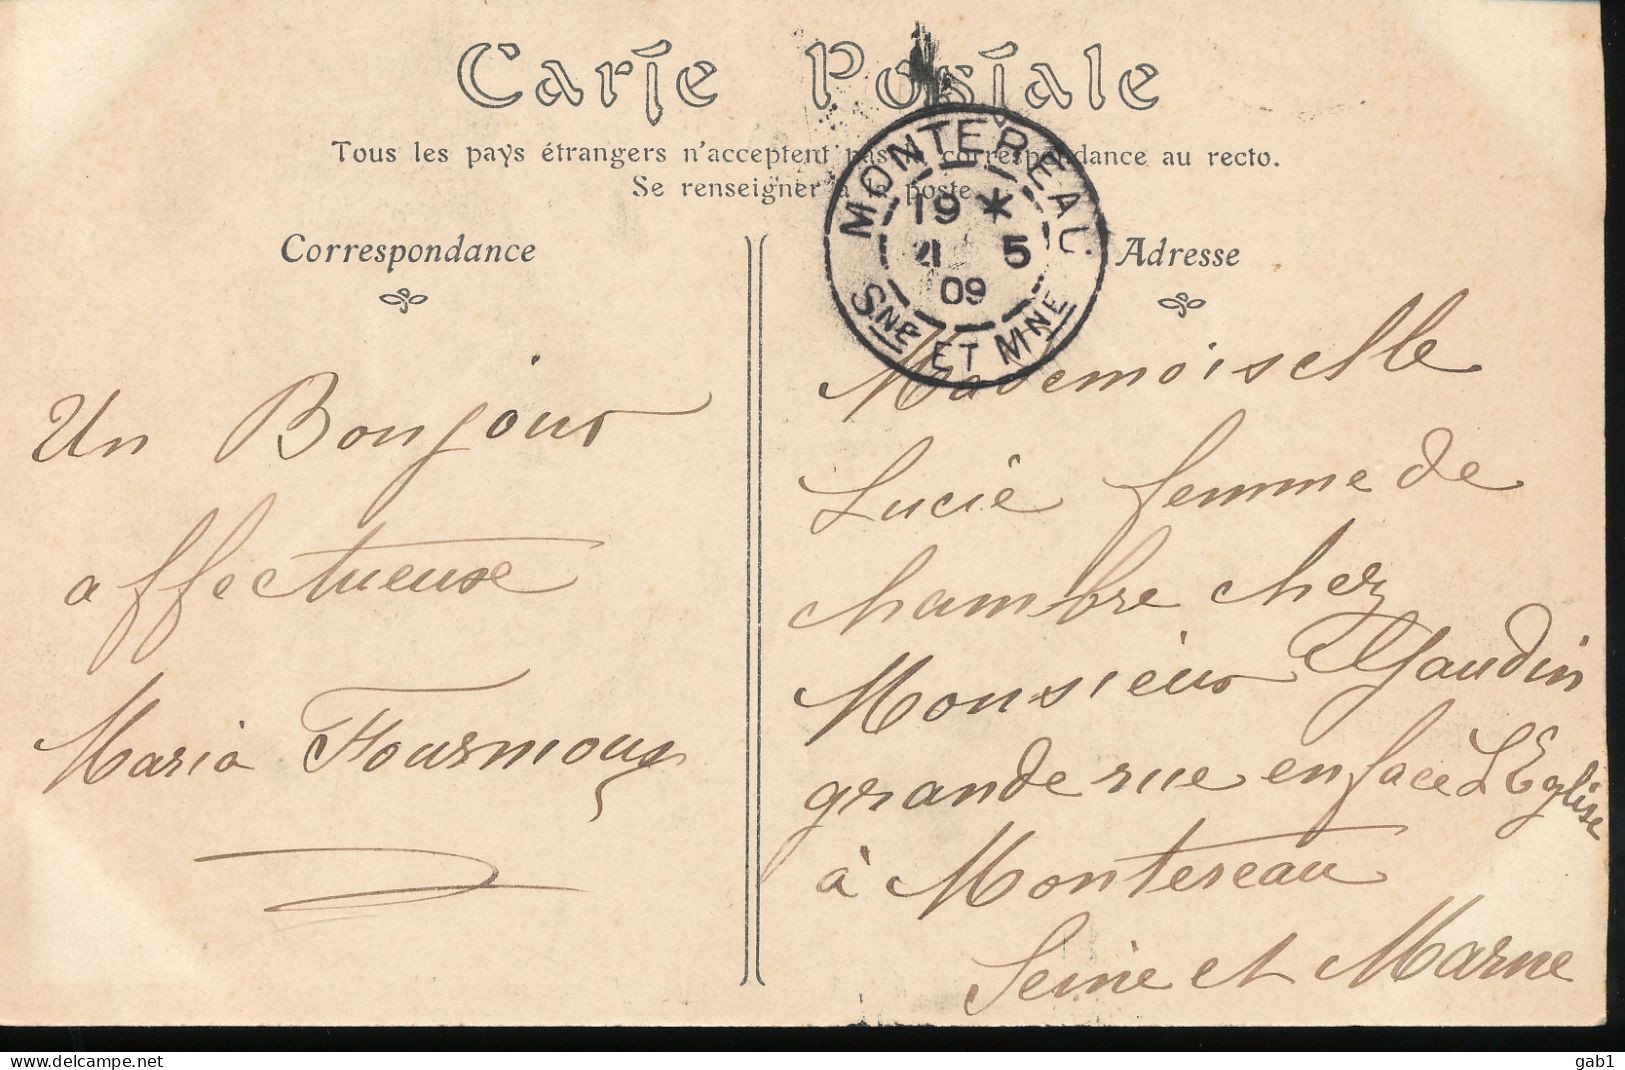 Carte Postale
Tous les pays étrangers n'acceptent pas la correspondance au recto.
Se renseigner à la poste
MONTEREAU
19 *
21 5
09
SNE ET MNE
Correspondance
Un Bonjour
affectueuse
Maria
Adresse
Mademoiselle
Lucie femme de
chambre chez
Monsieur Gaudin
grande rue en face L'Eglise
à Montereau
Seine et Marne
www.delcampe.net
gab1